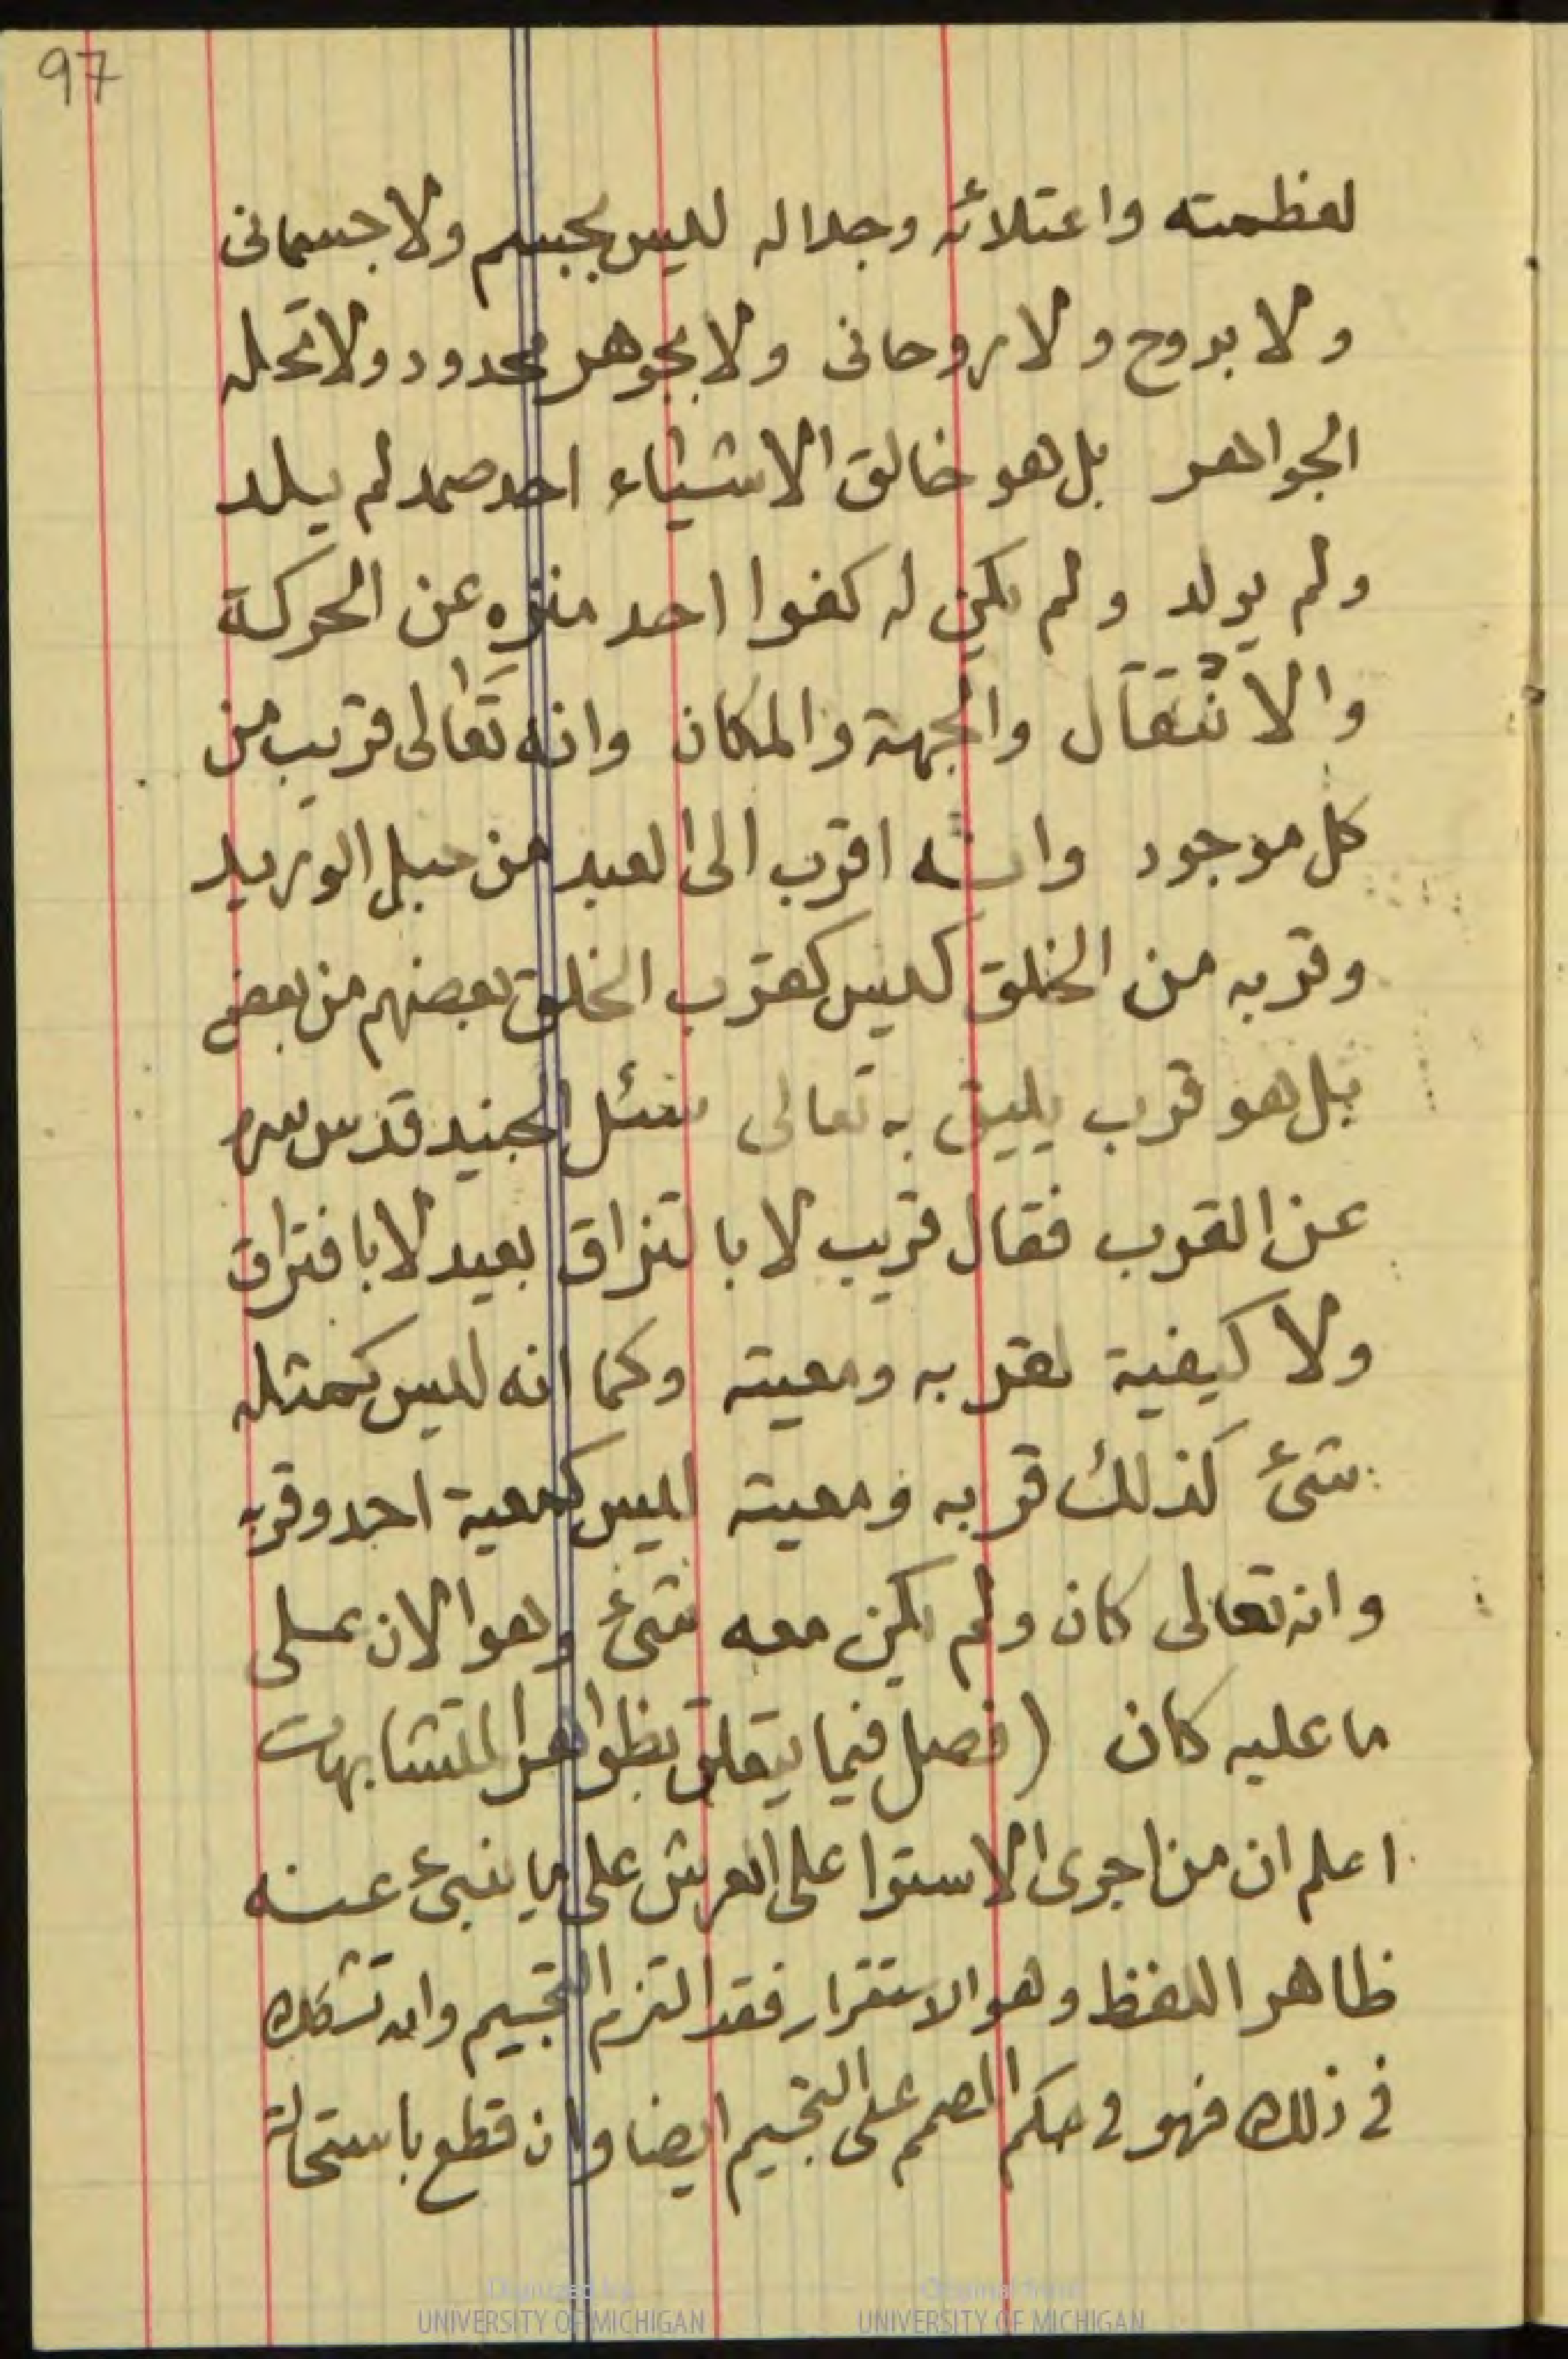 97
لعظمته واعتلائه وجلاله ليس بجسم ولا جسمانى
ولا بروح ولا روحانى ولا بجوهر محدود ولا تحله
الجواهر بل هو خالق الاشياء احد صمد لم يلد
ولم يولد ولم يكن له كفوا احد منزه عن الحركة
والانتقال والجهة والمكان وانه تعالى قريب من
كل موجود وانه اقرب الى العبد من حبل الوريد
وقربه من الخلق ليس كقرب الخلق بعضهم من بعض
بل هو قرب يليق به تعالى سئل الجنيد قدس سره
عن القرب فقال قريب لا بالتزاق بعيد لا بافتراق
ولا كيفية لقربه ومعيته وكما انه ليس كمثله
شئ كذلك قربه ومعيته ليس كمعية احد وقربه
وانه تعالى كان ولم يكن معه شئ وهو الان على
ما عليه كان (فصل فيما يتعلق بظواهر المتشابهات
اعلم ان من اجرى الاستوا على العرش على ما ينبئ عنه
ظاهر اللفظ وهو الاستقرار فقد التزم التجسيم وان تشكك
فى ذلك فهو فى حكم المصمم على التجسيم ايضا وان قطع باستحالة
Digitized by
UNIVERSITY OF MICHIGAN
Original from
UNIVERSITY OF MICHIGAN